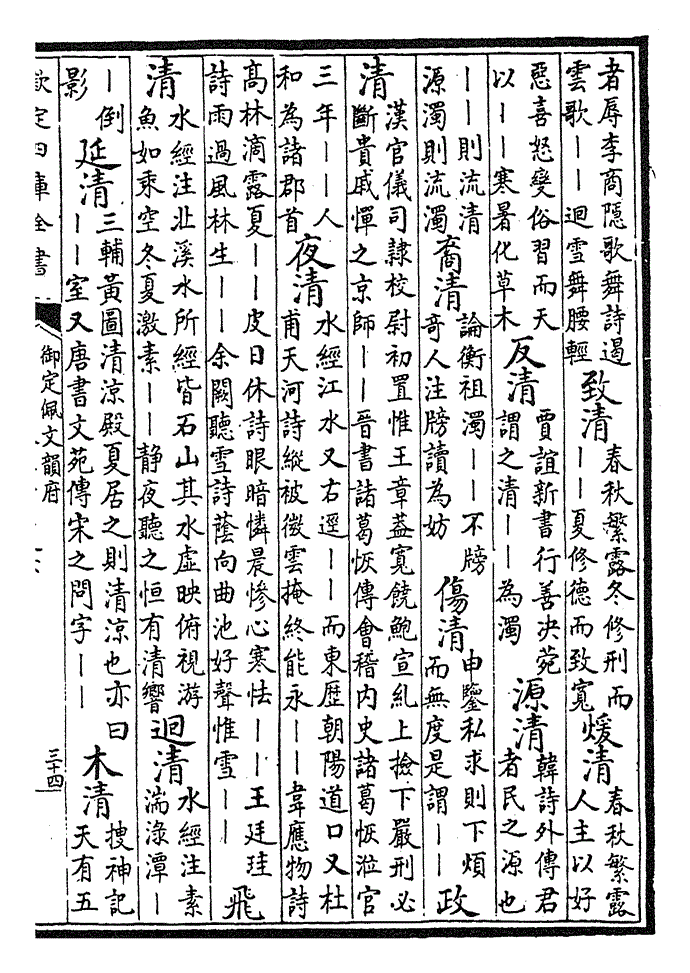 者辱李商隱歌舞詩遏
雲歌——迴雪舞腰輕
致清
春秋繁露冬修刑而
——夏修德而致寬
煖清
春秋繁露
人主以好
惡喜怒變俗習而天
以——寒暑化草木
反清
賈誼新書行善决菀
謂之清——為濁
源清
韓詩外傳君
者民之源也
——則流清
源濁則流濁
裔清
論衡祖濁——不牓
奇人注牓讀為妨
傷清
申鑒私求則下煩
而無度是謂——
政
清
漢官儀司隸校尉初置惟王章葢寬饒鮑宣糺上撿下嚴刑必
斷貴戚憚之京師——晉書諸葛恢傳會稽内史諸葛恢涖官
三年——人
和為諸郡首
夜清
水經江水又右逕——而東歴朝陽道口又杜
甫天河詩縱被微雲掩終能永——韋應物詩
高林滴露夏——皮日休詩眼暗憐晨惨心寒怯——王廷珪
詩雨過風林生——余闕聽雪詩蔭向曲池好聲惟雪——
飛
清
水經注北溪水所經皆石山其水虛映俯視游
魚如乘空冬夏激素——静夜聽之恒有清響
迴清
水經注素
湍淥潭—
—倒
影
延清
三輔黃圖清涼殿夏居之則清涼也亦曰
——室又唐書文苑傳宋之問字——
木清
搜神記
天有五
欽定四庫全書
御定佩文韻府
三十四